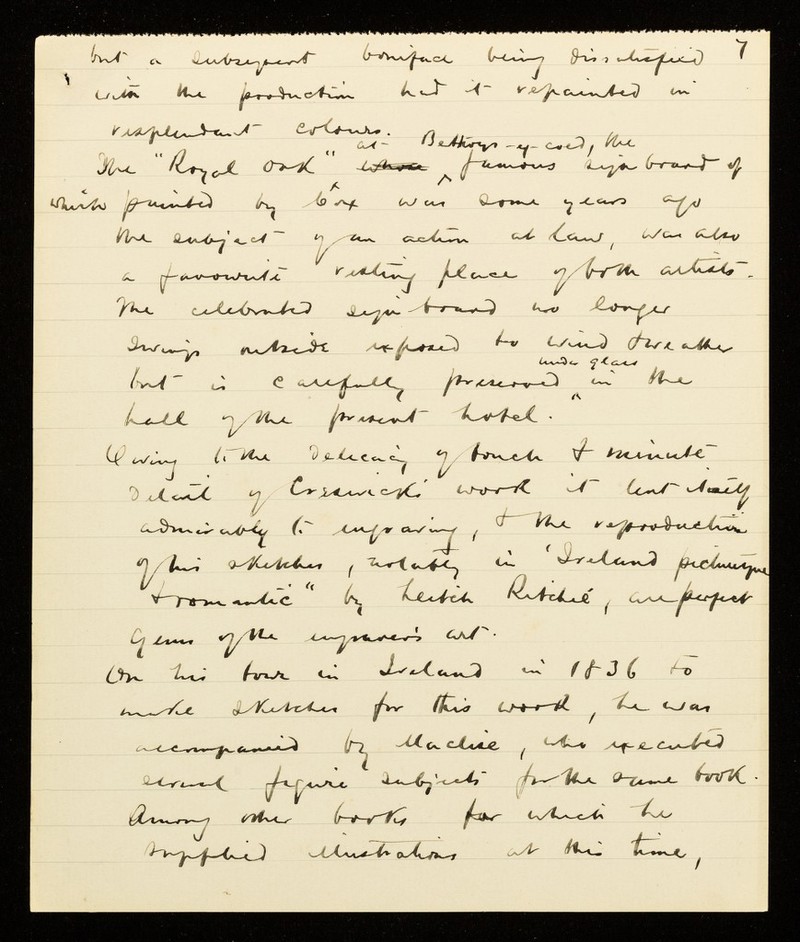 7
but a subsequent boniface being dissatisfied
with the production had it repainted in
resplendent colours.
at Bettws-y-coed, the
The "Royal Oak" whose famous sign board of
which painted by Cox was some years ago
the subject of an action at law, was also
a favourite resting place of both artists.
The celebrated sign board no longer
swings outside exposed to wind & weather
under glass
but is carefully preserved in the
hall of the present hotel.
Owing to the delicacy of touch & minute
detail of Creswick's work it lent itself
admirably to engraving, & the reproduction
of his sketches, notably in "Ireland picturesque
& romantic" by Leitch Ritchie, are perfect
gems of the engraver's art.
On his tour in Ireland in 1836 to
make sketches for this work, he was
accompanied by Maclise, who executed
several figure subjects for the same book.
Among other books for which he
supplied illustrations at this time,